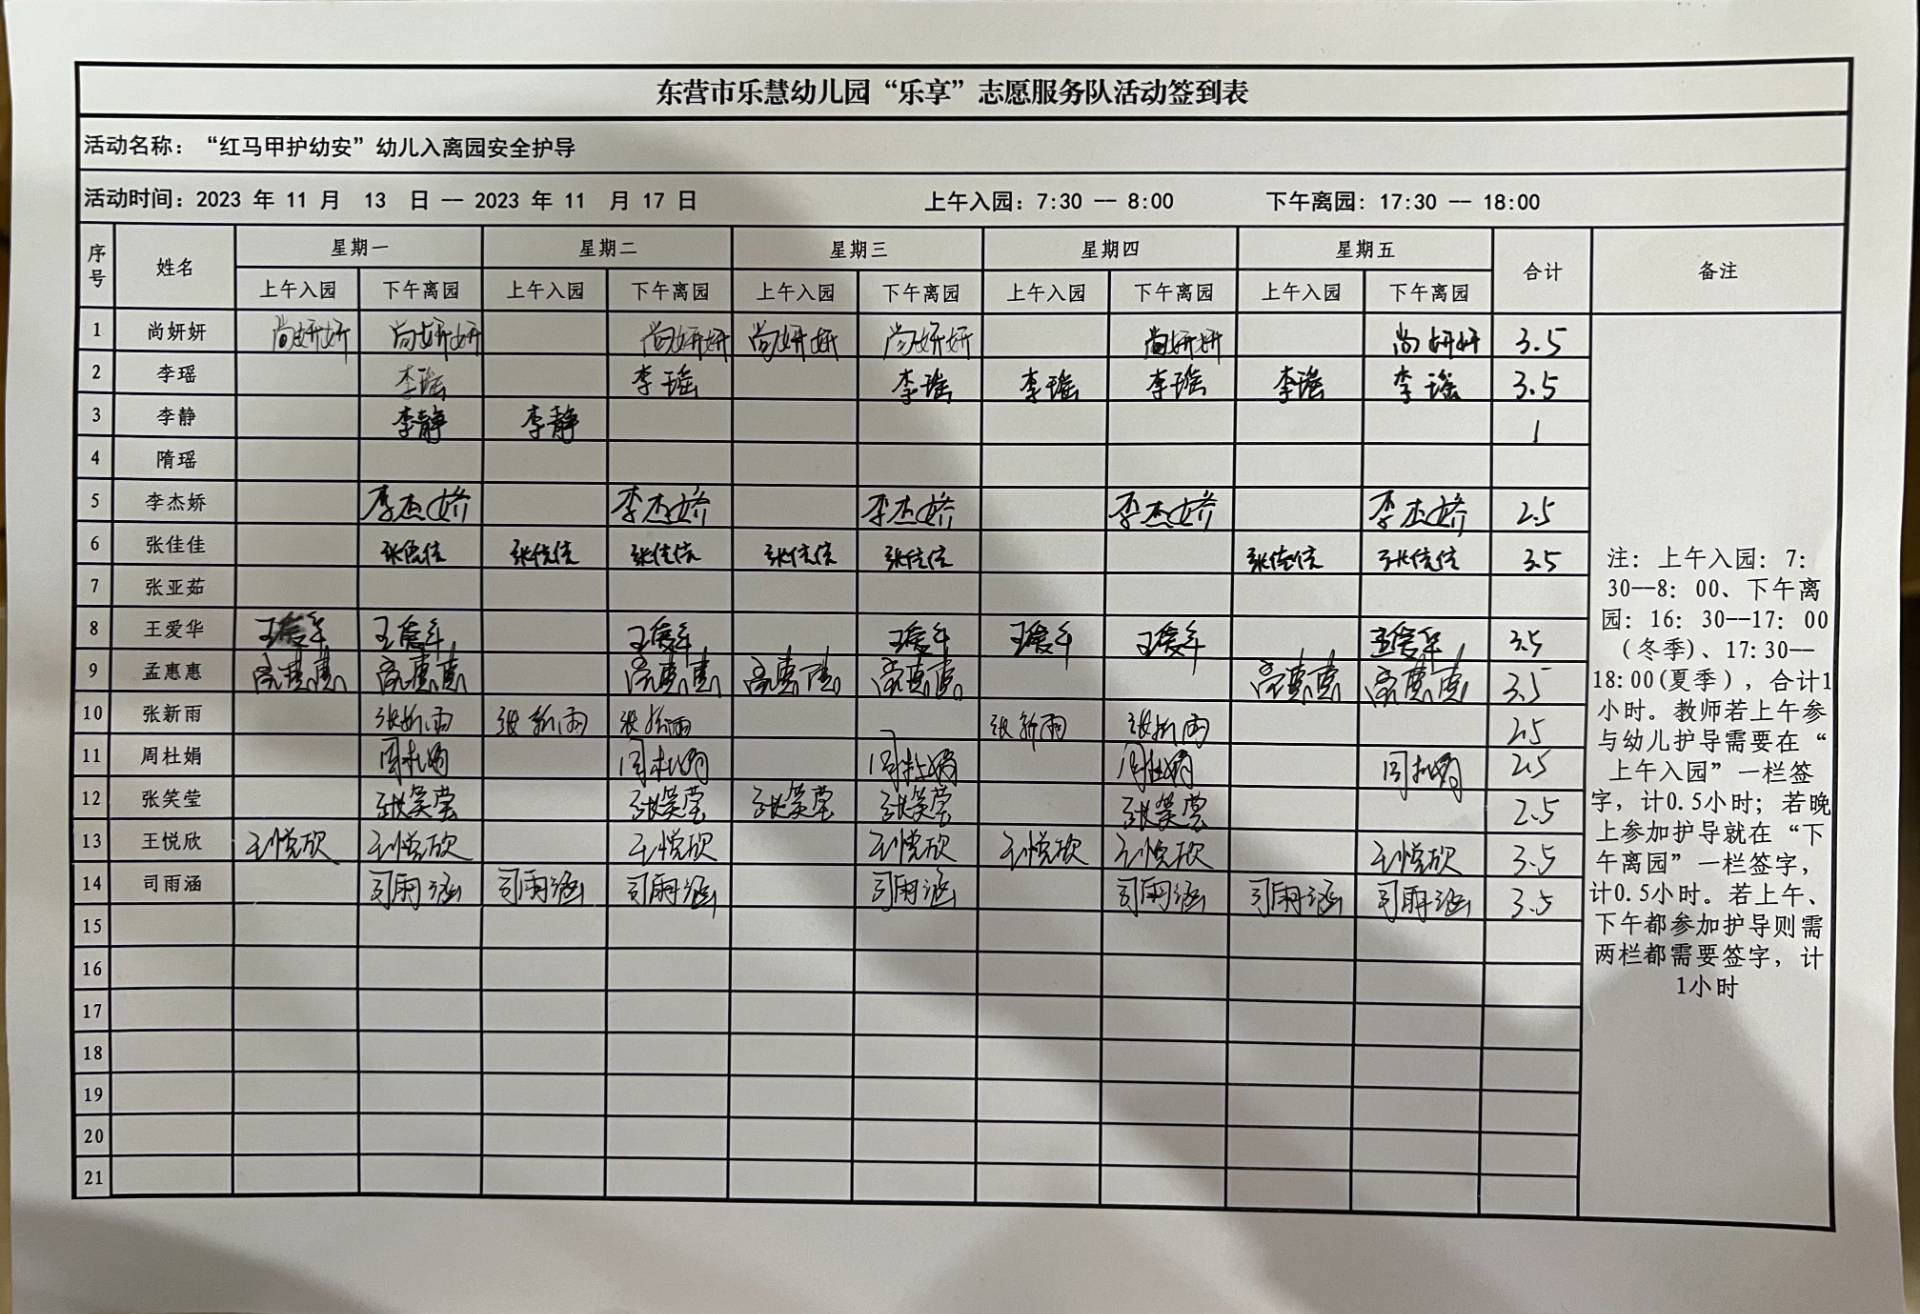 东营市乐慧幼儿园“乐享”志愿服务队活动签到表
活动名称：“红马甲护幼安”幼儿入离园安全护导
活动时间：2023 年 11 月 13 日 —— 2023 年 11 月 17 日 上午入园：7:30 —— 8:00 下午离园：17:30 —— 18:00
序号 姓名 星期一 星期二 星期三 星期四 星期五 合计 备注
上午入园 下午离园 上午入园 下午离园 上午入园 下午离园 上午入园 下午离园 上午入园 下午离园
1 尚妍妍 尚妍妍 尚妍妍 尚妍妍 尚妍妍 尚妍妍 尚妍妍 尚妍妍 3.5
2 李瑶 李瑶 李瑶 李瑶 李瑶 李瑶 李瑶 李瑶 3.5
3 李静 李静 李静 1
4 隋瑶
5 李杰娇 李杰娇 李杰娇 李杰娇 李杰娇 李杰娇 2.5
6 张佳佳 张佳佳 张佳佳 张佳佳 张佳佳 张佳佳 张佳佳 张佳佳 3.5
7 张亚茹
8 王爱华 王爱华 王爱华 王爱华 王爱华 王爱华 王爱华 王爱华 3.5
9 孟惠惠 孟惠惠 孟惠惠 孟惠惠 孟惠惠 孟惠惠 孟惠惠 孟惠惠 3.5
10 张新雨 张新雨 张新雨 张新雨 张新雨 张新雨 2.5
11 周杜娟 周杜娟 周杜娟 周杜娟 周杜娟 周杜娟 2.5
12 张笑莹 张笑莹 张笑莹 张笑莹 张笑莹 张笑莹 2.5
13 王悦欣 王悦欣 王悦欣 王悦欣 王悦欣 王悦欣 王悦欣 王悦欣 3.5
14 司雨涵 司雨涵 司雨涵 司雨涵 司雨涵 司雨涵 司雨涵 司雨涵 3.5
15
16
17
18
19
20
21
注：上午入园：7：
30——8：00、下午离
园：16：30——17：00
（冬季）、17:30——
18:00(夏季），合计1
小时。教师若上午参
与幼儿护导需要在“
上午入园”一栏签
字，计0.5小时；若晚
上参加护导就在“下
午离园”一栏签字，
计0.5小时。若上午、
下午都参加护导则需
两栏都需要签字，计
1小时